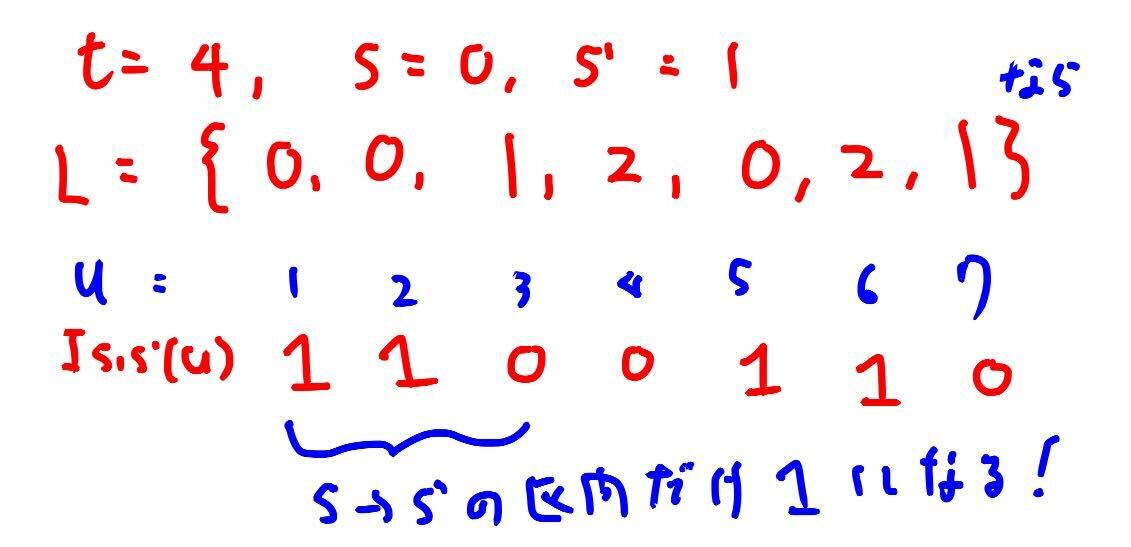 t = 4, S = 0, S' = 1
なら
L = { 0, 0, 1, 2, 0, 2, 1 }
u = 1 2 3 4 5 6 7
I s,s'(u) 1 1 0 0 1 1 0
S→S'の区間だけ1になる!